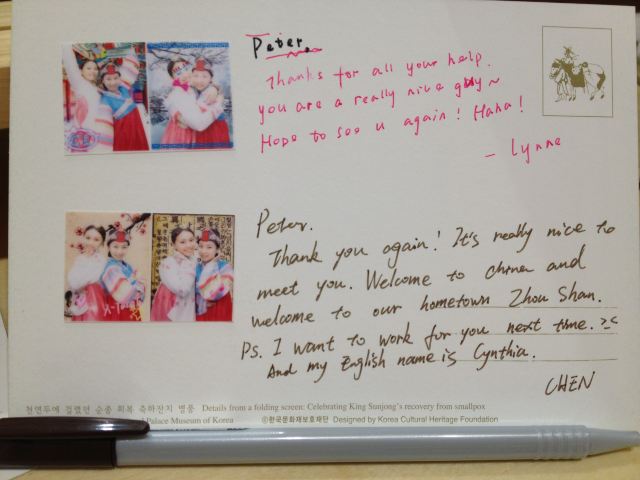 Peter.
Thanks for all your help.
you are a really nice guy~
Hope to see u again! Haha!
- Lynne
Peter.
Thank you again! It's really nice to
meet you. Welcome to China and
welcome to our hometown Zhou Shan.
Ps. I want to work for you next time. >.<
And my English name is Cynthia.
CHEN
천연두에 걸렸던 순종 회복 축하잔치 병풍 Details from a folding screen: Celebrating King Sunjong's recovery from smallpox
Palace Museum of Korea ©한국문화재보호재단 Designed by Korea Cultural Heritage Foundation